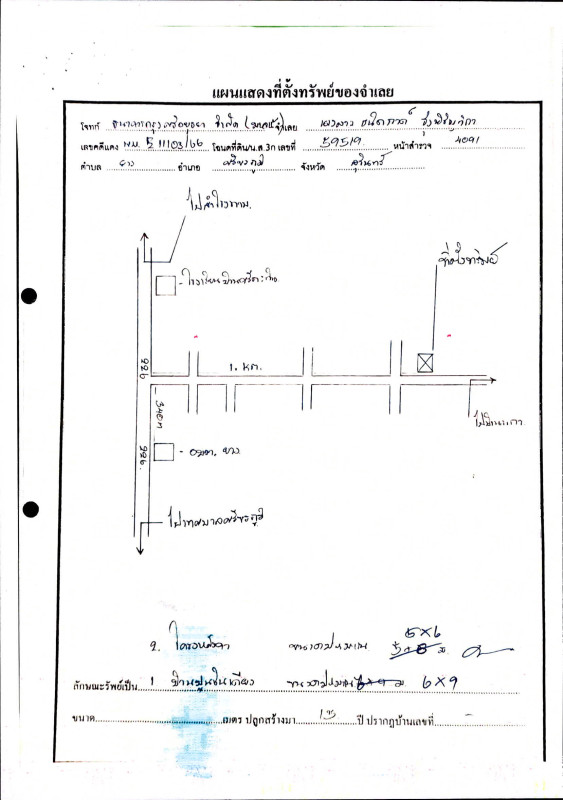 แผนแสดงที่ตั้งทรัพย์ของจำเลย
โจทก์ ธนาคารกรุงศรีอยุธยา จำกัด (มหาชน) จำเลย นางสาว
เลขคดีแดง ผบ. E 11103/66 โฉนดที่ดิน/น.ส.3ก เลขที่ 59519 หน้าสำรวจ 4091
ตำบล ยาง อำเภอ ศีขรภูมิ จังหวัด สุรินทร์
ไปสำโรงทาบ
ที่ตั้งทรัพย์
- โรงเรียนบ้าน
226
1. กม.
340 ม
ไปบ้าน
226
- อบต. ยาง
ไปเทศบาลศีขรภูมิ
2. โครงหลังคา ขนาดประมาณ 5×6
ลักษณะทรัพย์เป็น 1 บ้านปูนชั้นเดียว ขนาดประมาณ 6×9
ขนาด เมตร ปลูกสร้างมา 13 ปี ปรากฏบ้านเลขที่ -